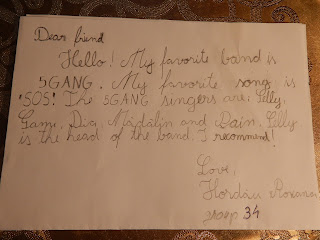 Dear friend
Hello! My favorite band is
5GANG. My favorite song is
"SOS". The 5GANG singers are: Selly,
Gami, Diża, Mădălin and Pain. Selly
is the head of the band. I recommend!
Love,
Hordău Roxana
group 34